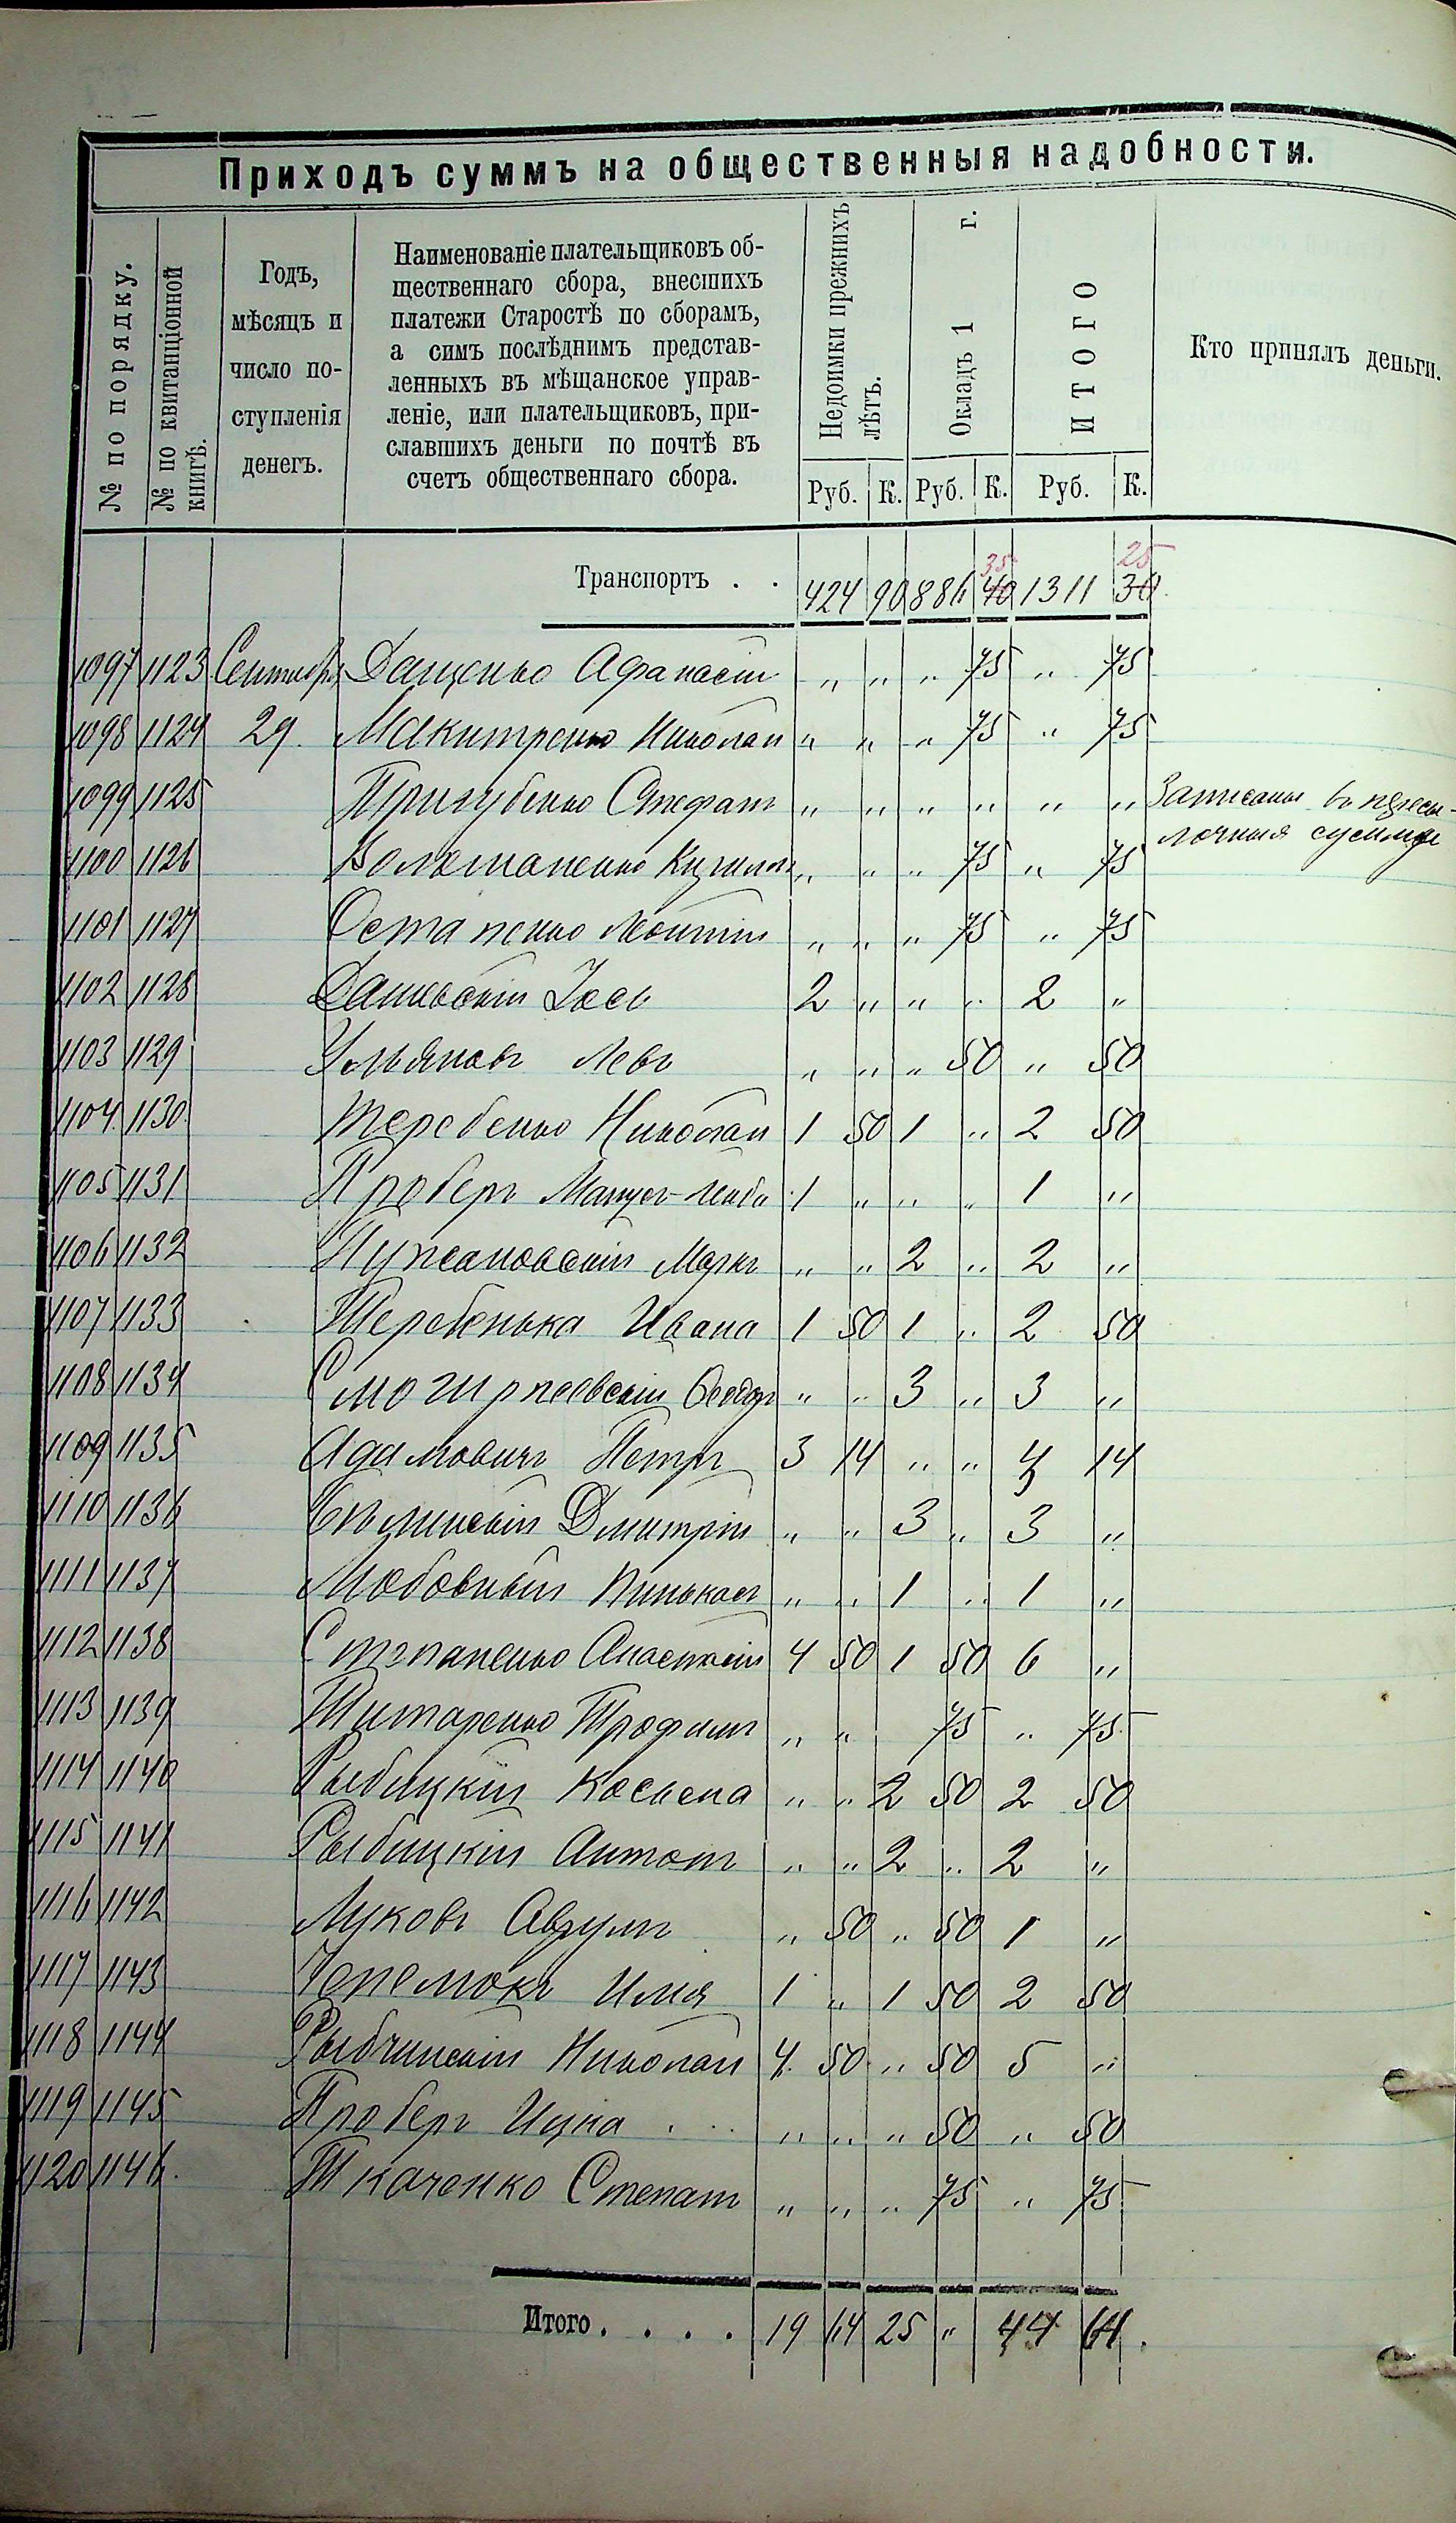 Приходъ суммъ на общественныя надобности.
№ по порядку.
№ по квитанціонной книгѣ.
Годъ,
мѣсяцъ и
число по-
ступленія
денегъ.
Наименованіе плательщиковъ об-
щественнаго сбора, внесшихъ
платежи Старостѣ по сборамъ,
а симъ послѣднимъ представ-
ленныхъ въ мѣщанское управ-
леніе, или плательщиковъ, при-
славшихъ деньги по почтѣ въ
счетъ общественнаго сбора.
Недоимки прежнихъ лѣтъ.
Окладъ 1 г.
ИТОГО
Кто принялъ деньги.
Руб. К. Руб. К. Руб. К.
35 25
Транспортъ . . 424 90 886 40 1311 30
1097 1123 Сентября Даценко Афанасій " " " 75 " 75
1098 1124 29. Макитренко Николай " " " 75 " 75
1099 1125 Пригубенко Стефанъ " " " " " " Записаны въ пересы-
лочныя суммы
1100 1126 " " " 75 " 75
1101 1127 Остапенко Леонтій " " " 75 " 75
1102 1128 Іось 2 " " " 2 "
1103 1129 Ульяновъ Левъ " " " 50 " 50
1104. 1130. Теребенко Николай 1 50 1 " 2 50
1105 1131 Проберъ 1 " " " 1 "
1106 1132 Маркъ " " 2 " 2 "
1107 1133 Теребенька Ивана 1 50 1 " 2 50
1108 1134 " " 3 " 3 "
1109 1135 Адамовичъ Петръ 3 14 " " 3 14
1110 1136 Бѣлинскій Дмитрій " " 3 " 3 "
1111 1137 " " 1 " 1 "
1112 1138 Степаненко Анастасій 4 50 1 50 6 "
1113 1139 Титаренко Трофимъ " " 75 " 75
1114 1140 Рыбицкій " " 2 50 2 50
1115 1141 Рыбицкій Антонъ " " 2 " 2 "
1116 1142 Луковъ " 50 " 50 1 "
1117 1143 Илія 1 " 1 50 2 50
1118 1144 Рыбчинскій Николай 4. 50 " 50 5 "
1119 1145 Проберъ Ицка " " " 50 " 50
1120 1146. Ткаченко Степанъ " " " 75 " 75
Итого . . . . 19 14 25 " 44